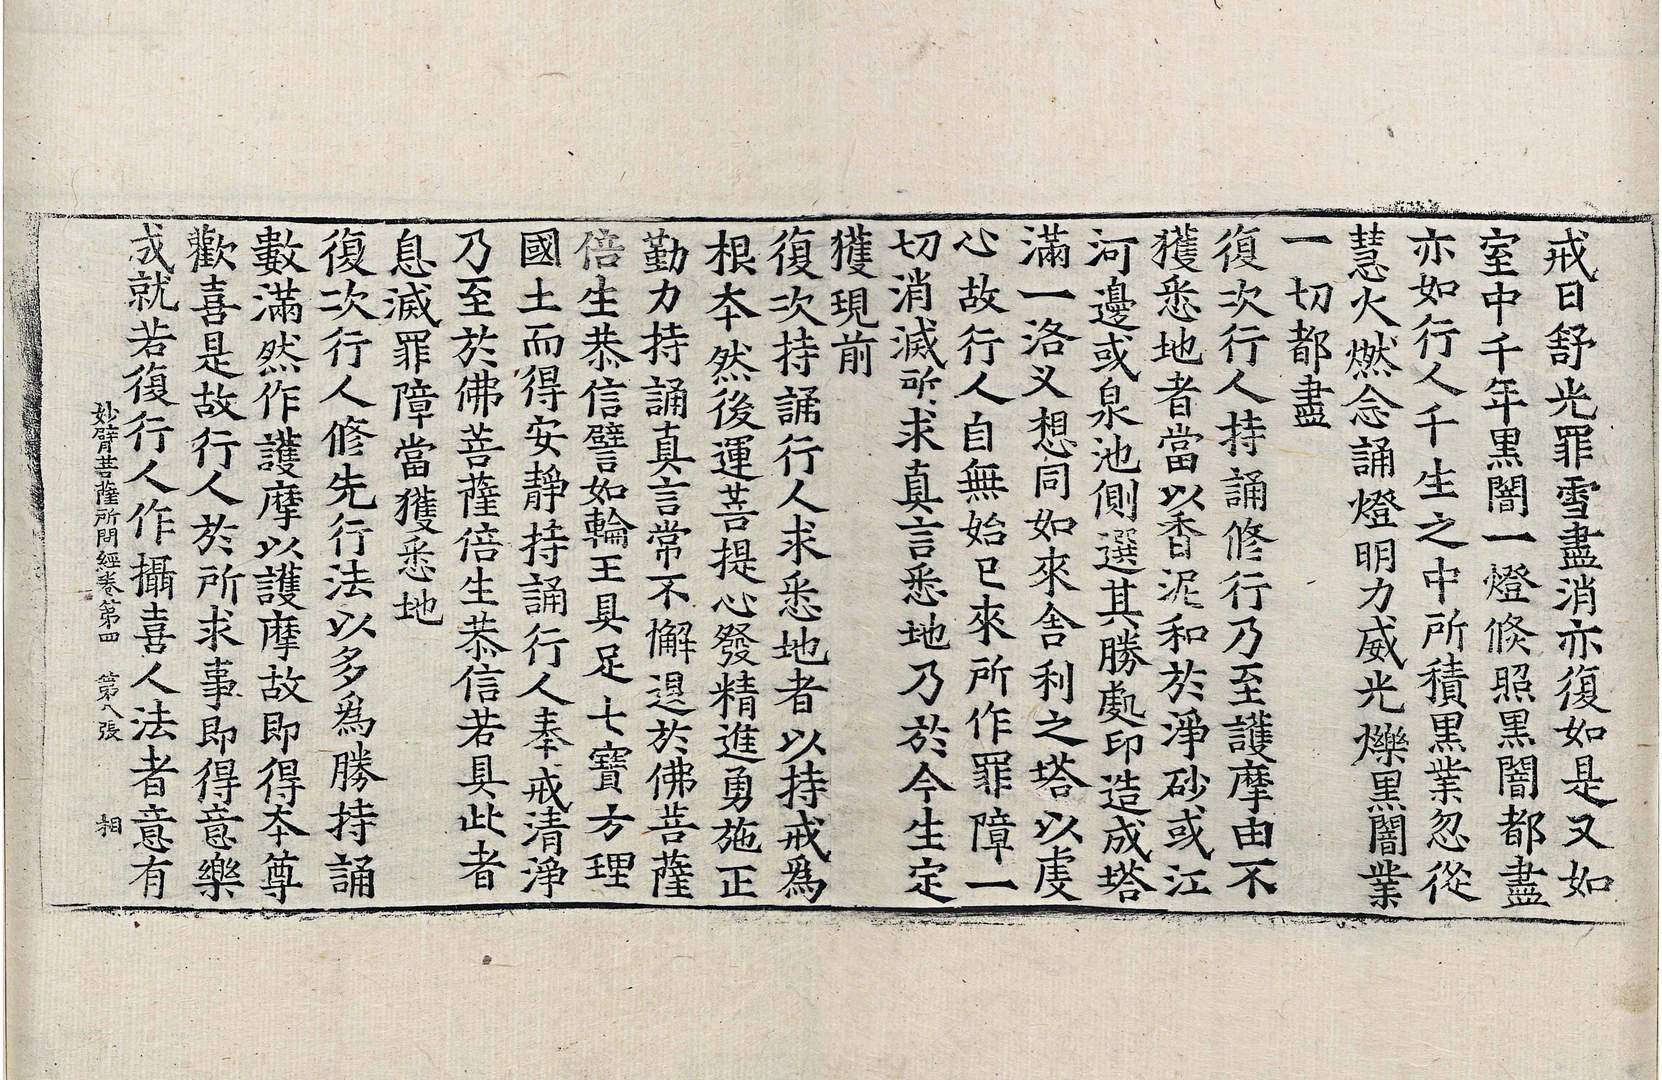 戒日舒光罪雪盡消亦復如是又如
室中千年黑闇一燈倏照黑闇都盡
亦如行人千生之中所積黑業忽從
慧火燃念誦燈明力威光爍黑闇業
一切都盡
復次行人持誦修行乃至護摩由不
獲悉地者當以香泥和於淨砂或江
河邊或泉池側選其勝處印造成塔
滿一洛义想同如來舍利之塔以虔
心故行人自無始已來所作罪障一
切消滅所求真言悉地乃於今生定
獲現前
復次持誦行人求悉地者以持戒爲
根本然後運菩提心發精進勇施正
勤力持誦真言常不懈退於佛菩薩
倍生恭信譬如輪王具足七寶方理
國土而得安靜持誦行人奉戒清淨
乃至於佛菩薩倍生恭信若具此者
息滅罪障當獲悉地
復次行人修先行法以多為勝持誦
數滿然作護摩以護摩故即得本尊
歡喜是故行人於所求事即得意樂
成就若復行人作攝喜人法者意有
妙臂菩薩所問經卷第四 第八張 相